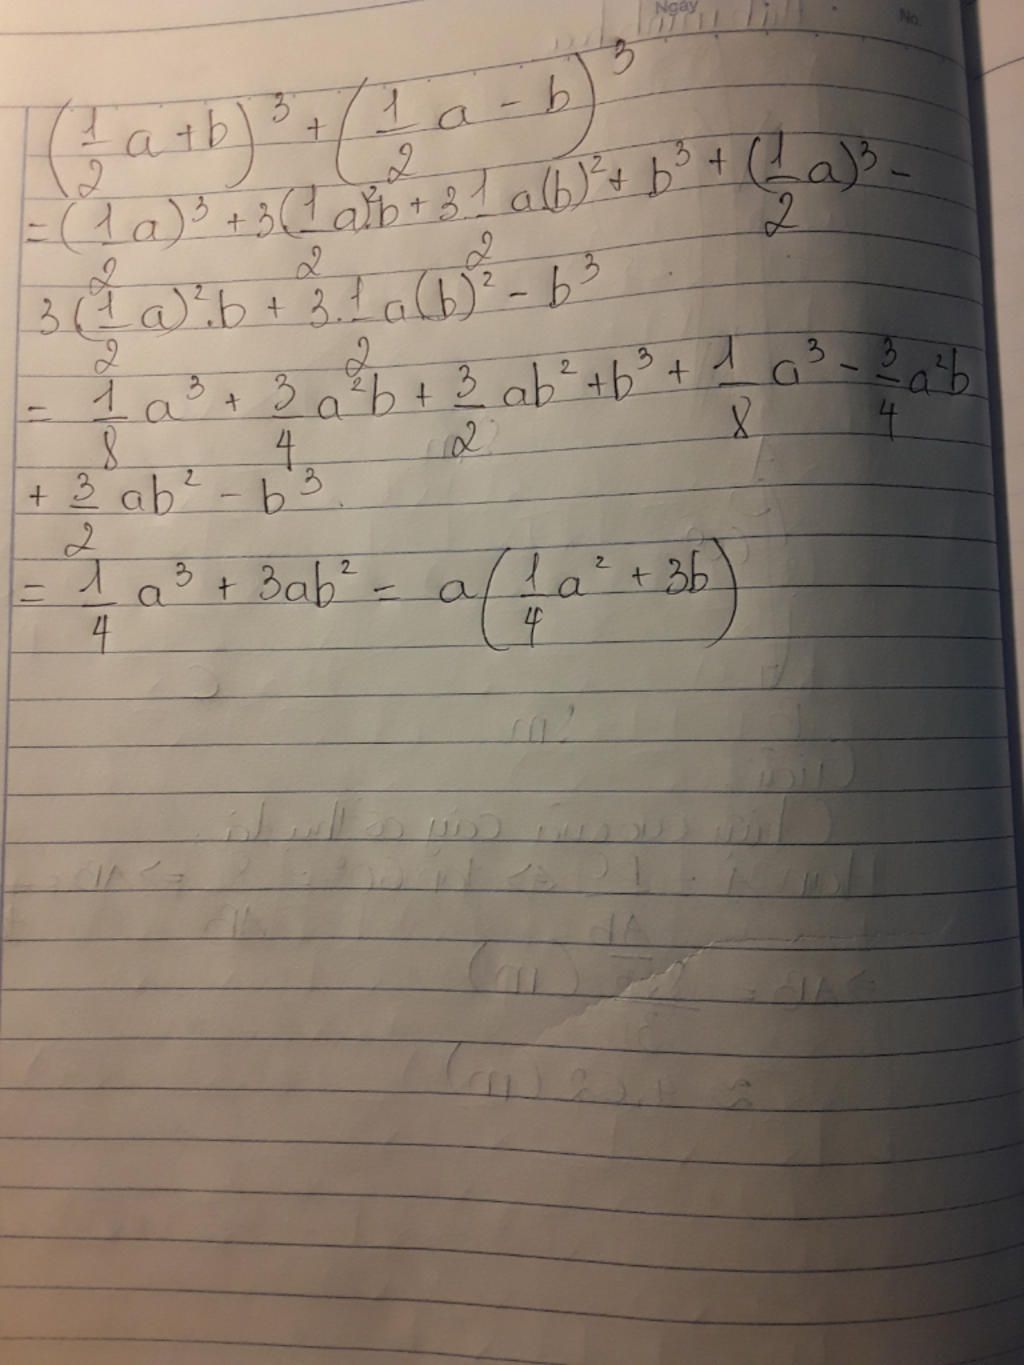 Ngày
No.
(1/2 a + b)³ + (1/2 a - b)³
= (1/2 a)³ + 3(1/2 a)².b + 3 1/2 a(b)² + b³ + (1/2 a)³ -
3(1/2 a)².b + 3.1/2 a(b)² - b³
= 1/8 a³ + 3/4 a²b + 3/2 ab² + b³ + 1/8 a³ - 3/4 a²b
+ 3/2 ab² - b³.
= 1/4 a³ + 3ab² = a(1/4 a² + 3b)